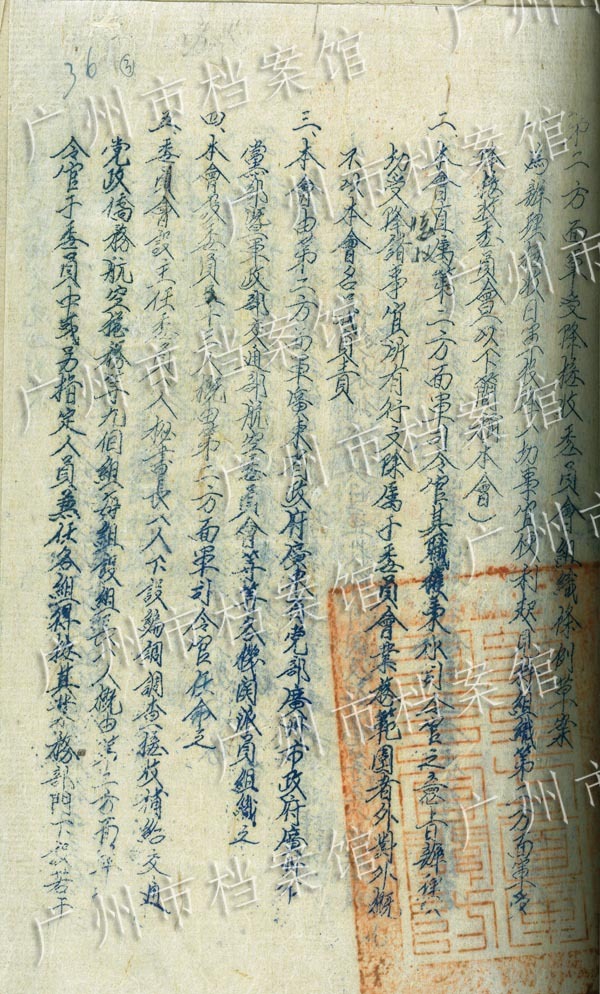 36
第二方面軍受降接收委員會組織條例草案
為辦理接收日軍投降一切事宜便利起見特組織第二方面軍受
降接收委員會(以下簡稱本會)
二、本會直屬第二方面軍司令官其職權秉承司令官之意旨辦理一
切受降接收諸事宜所有行文除屬于委員會業務範圍者外對外概
不以本會名義負責
三、本會由第二方面軍廣東省政府廣東省党部廣州市政府廣州市
黨部暨軍政部交通部航空委員會等等各機関派員組織之
四、本會設委員若干人概由第二方面軍司令官任命之
五、委員會設主任委員一人秘書長一人下設編調調查接收補給交通
党政僑務航空總務等九個組每組設組長一人概由第二方面軍司
令官于委員中或另指定人員兼任各組得按其業務部門下設若干
广州市档案馆